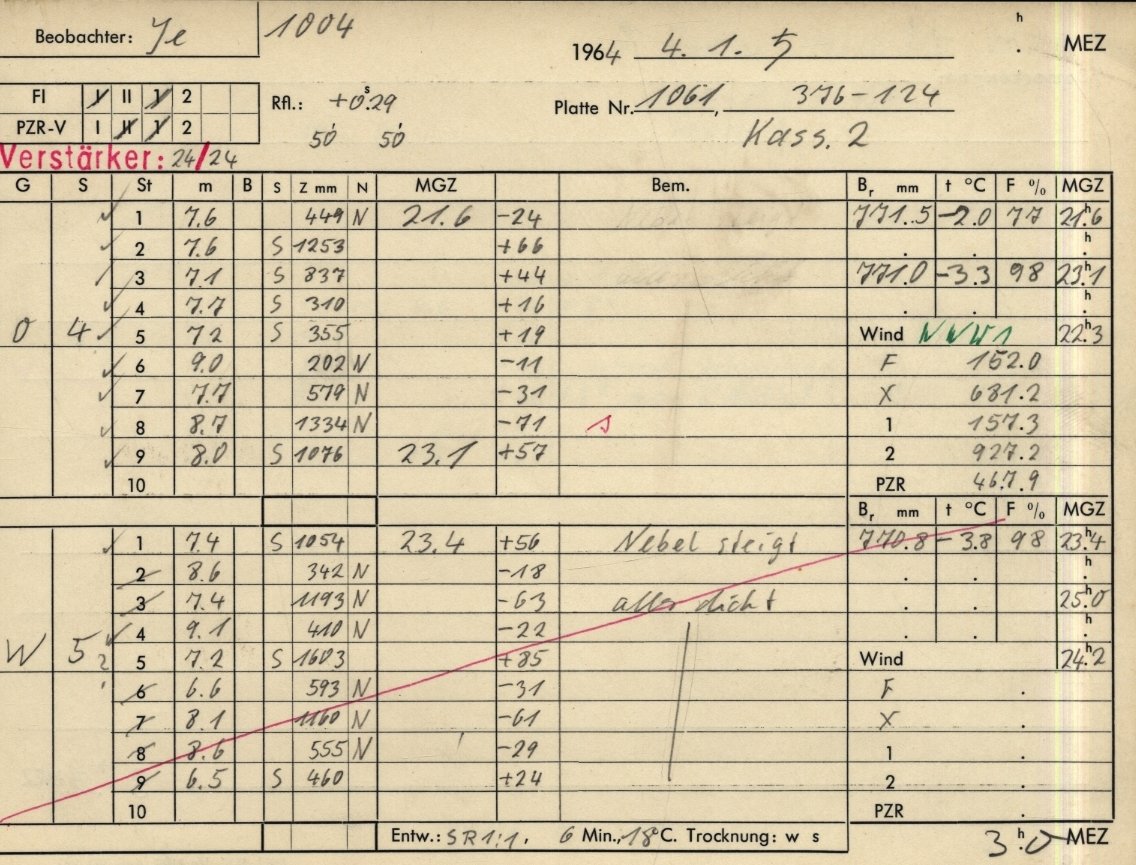 Beobachter: Je 1004
1964 4. 1. 5 h . MEZ
FI I II 1 2
PZR-V I II 1 2
Rfl.: +0s29
50' 50'
Platte Nr. 1061, 376-124
Kass. 2
Verstärker: 24/24
G S St m B S Z mm N MGZ Bem. Br mm t °C F % MGZ
1 7.6 449 N 21.6 -24 771.5 -2.0 77 21h6
2 7.6 S 1253 +66 . . h
3 7.1 S 837 +44 771.0 -3.3 98 23h1
4 7.7 S 310 +16 . . h
O 4 5 7.2 S 355 +19 Wind NNW1 22h3
6 9.0 202 N -11 F 152.0
7 7.7 579 N -31 X 681.2
8 8.7 1334 N -71 s 1 157.3
9 8.0 S 1076 23.1 +57 2 927.2
10 PZR 467.9
Br mm t °C F % MGZ
1 7.4 S 1054 23.4 +56 Nebel steigt 770.8 -3.8 98 23h4
2 8.6 342 N -18 . . h
3 7.4 1193 N -63 alles dicht . . 25h0
4 9.1 410 N -22 . . h
W 5 2 5 7.2 S 1603 +85 Wind 24h2
6 6.6 593 N -31 F .
7 8.1 1160 N -61 X .
8 8.6 555 N -29 1 .
9 6.5 S 460 +24 2 .
10 PZR .
Entw.: SR1:1. 6 Min., 18°C. Trocknung: w s 3h.0 MEZ